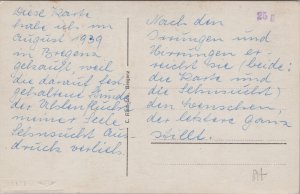 Diese Karte
habe ich im
August 1939
in Bregenz
gekauft weil
die darauf fest
gehaltene Stunde
der
meiner Seele
Sehnsucht Aus
druck verlieh.
Nach den
Irrungen und
Verwirrungen er
reicht sie (beide:
die Karte und
die Sehnsucht)
den Menschen,
der letztere ganz
stillt.
25
Bregenz